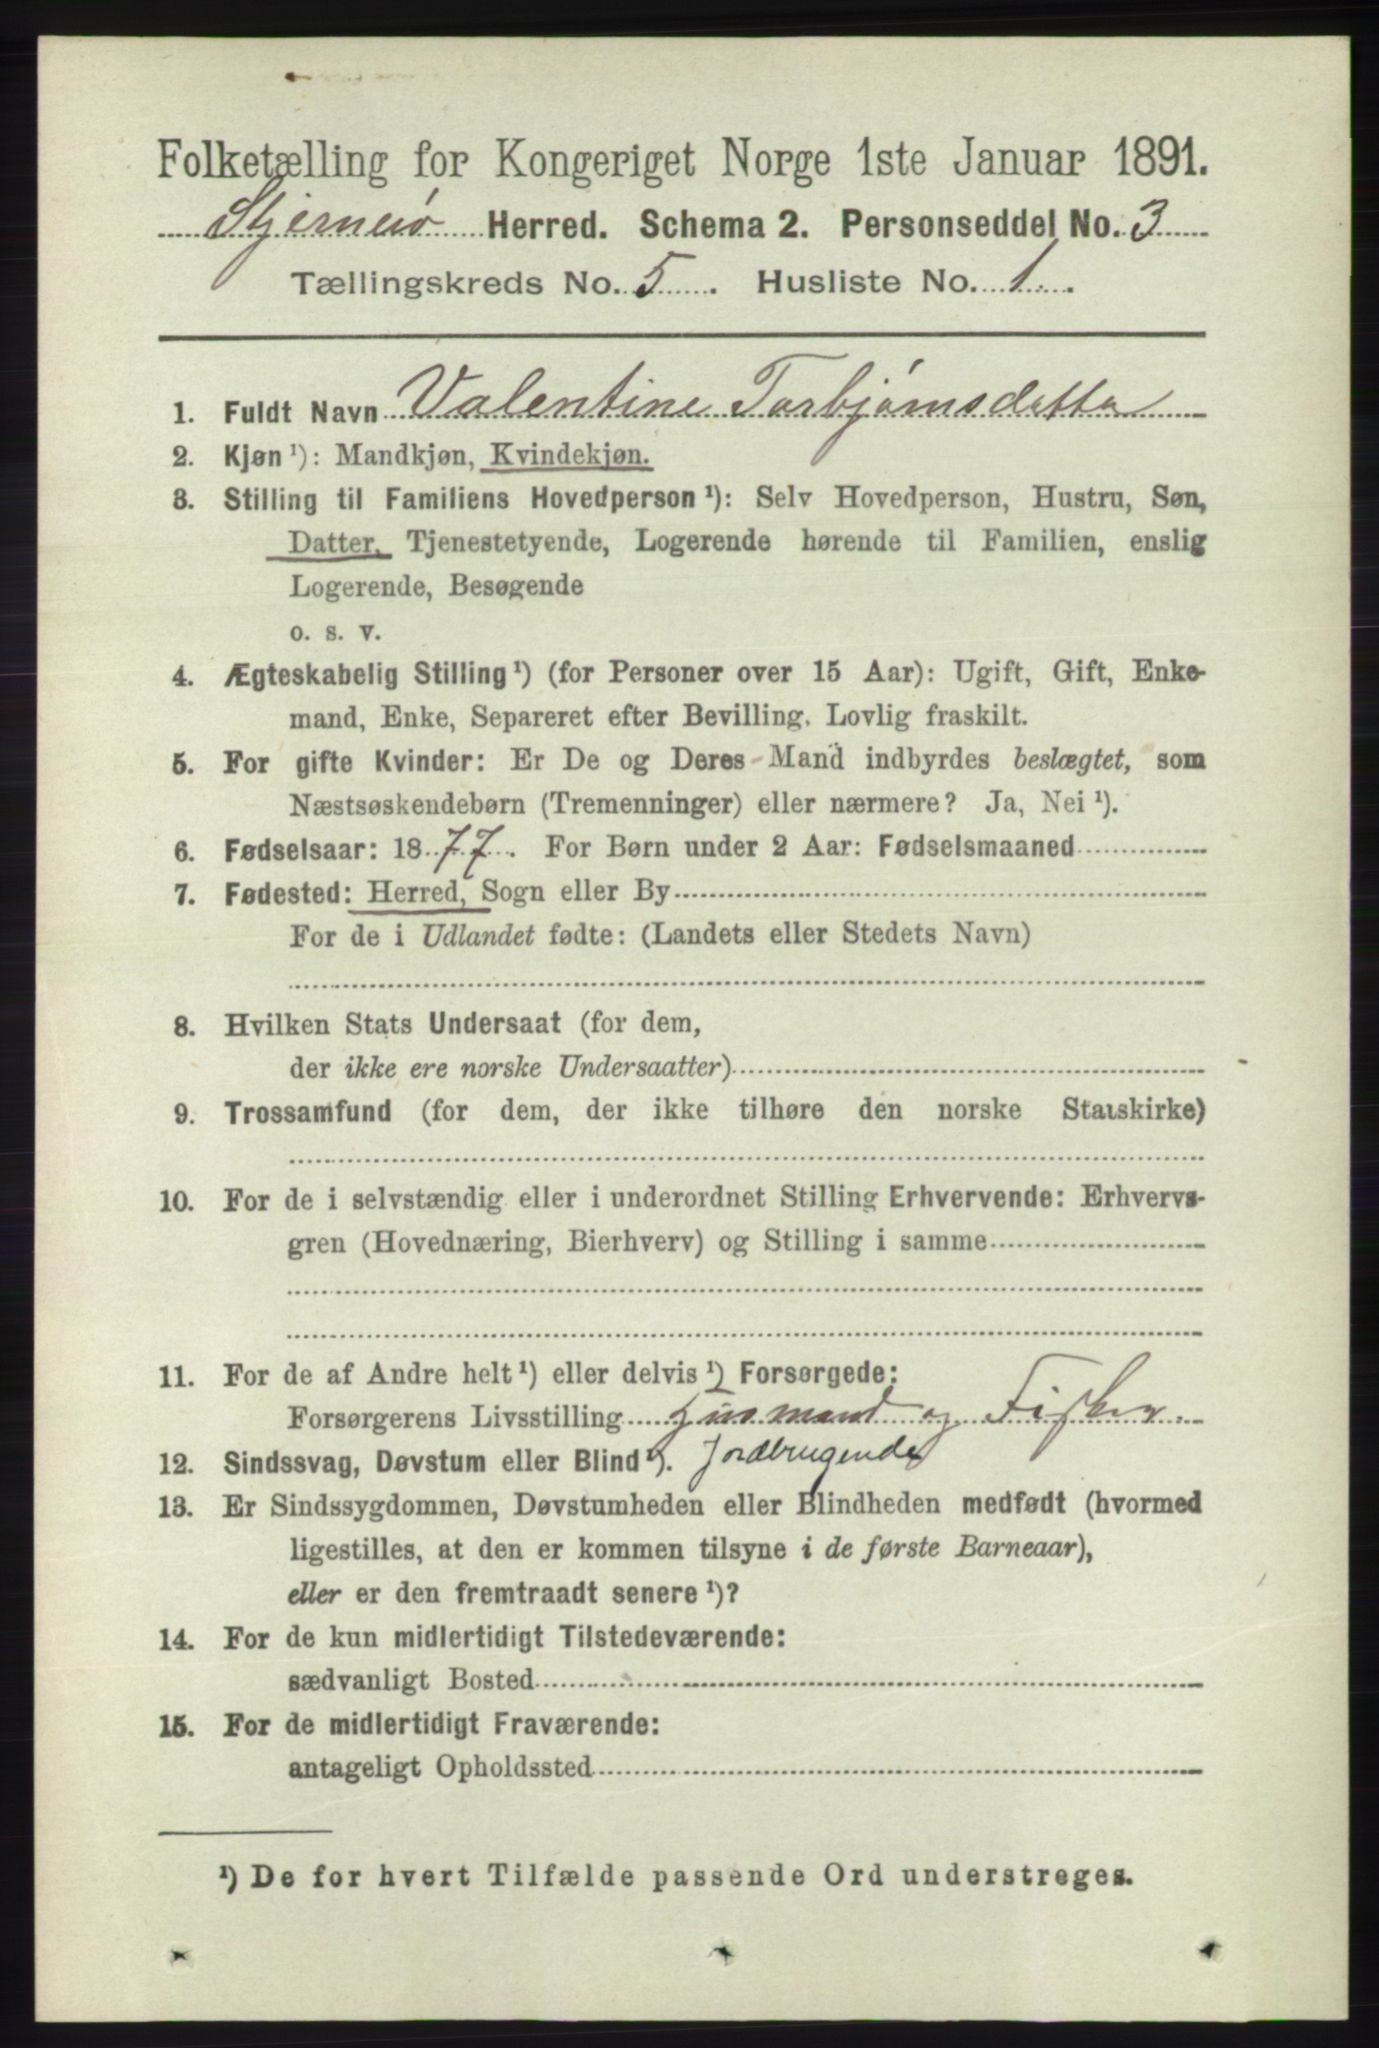 Folketælling for Kongeriget Norge 1ste Januar 1891.
Stjernerö Herred. Schema 2. Personseddel No. 3
Tællingskreds No. 5. Husliste No. 1.
1. Fuldt Navn Valentine Torbjörnsdatter
2. Kjøn ¹): Mandkjøn, Kvindekjøn.
3. Stilling til Familiens Hovedperson ¹): Selv Hovedperson, Hustru, Søn,
Datter, Tjenestetyende, Logerende hørende til Familien, enslig
Logerende, Besøgende
o. s. v.
4. Ægteskabelig Stilling ¹) (for Personer over 15 Aar): Ugift, Gift, Enke-
mand, Enke, Separeret efter Bevilling. Lovlig fraskilt.
5. For gifte Kvinder: Er De og Deres Mand indbyrdes beslægtet, som
Næstsøskendebørn (Tremenninger) eller nærmere? Ja, Nei ¹).
6. Fødselsaar: 1877. For Børn under 2 Aar: Fødselsmaaned
7. Fødested: Herred, Sogn eller By
For de i Udlandet fødte: (Landets eller Stedets Navn)
8. Hvilken Stats Undersaat (for dem,
der ikke ere norske Undersaatter)
9. Trossamfund (for dem, der ikke tilhøre den norske Statskirke)
10. For de i selvstændig eller i underordnet Stilling Erhvervende: Erhvervs-
gren (Hovednæring, Bierhverv) og Stilling i samme
11. For de af Andre helt ¹) eller delvis ¹) Forsørgede:
Forsørgerens Livsstilling Husmand og Fisker.
12. Sindssvag, Døvstum eller Blind ¹). Jordbrugende
13. Er Sindssygdommen, Døvstumheden eller Blindheden medfødt (hvormed
ligestilles, at den er kommen tilsyne i de første Barneaar),
eller er den fremtraadt senere ¹)?
14. For de kun midlertidigt Tilstedeværende:
sædvanligt Bosted
15. For de midlertidigt Fraværende:
antageligt Opholdssted
¹) De for hvert Tilfælde passende Ord understreges.